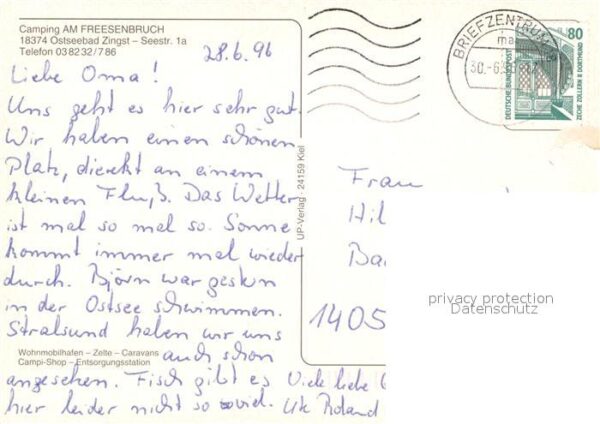 Camping AM FREESENBRUCH
18374 Ostseebad Zingst – Seestr. 1a
Telefon 03 82 32 / 7 86
28.6.96
Liebe Oma!
Uns geht es hier sehr gut.
Wir haben einen schönen
Platz, dierekt an einem
kleinen Fluß. Das Wetter
ist mal so mal so. Sonne
kommt immer mal wieder
durch. Björn war gestern
in der Ostsee schwimmen.
Stralsund haben wir uns
auch schon
Wohnmobilhafen – Zelte – Caravans
Campi-Shop – Entsorgungsstation
angesehen. Fisch gibt es
hier leider nicht so viel.
Viele liebe
Ute Roland
UP-Verlag · 24159 Kiel
BRIEFZENTRUM
80
DEUTSCHE BUNDESPOST
ZECHE ZOLLERN II DORTMUND
Frau
Hil
Ba
1405
privacy protection
Datenschutz